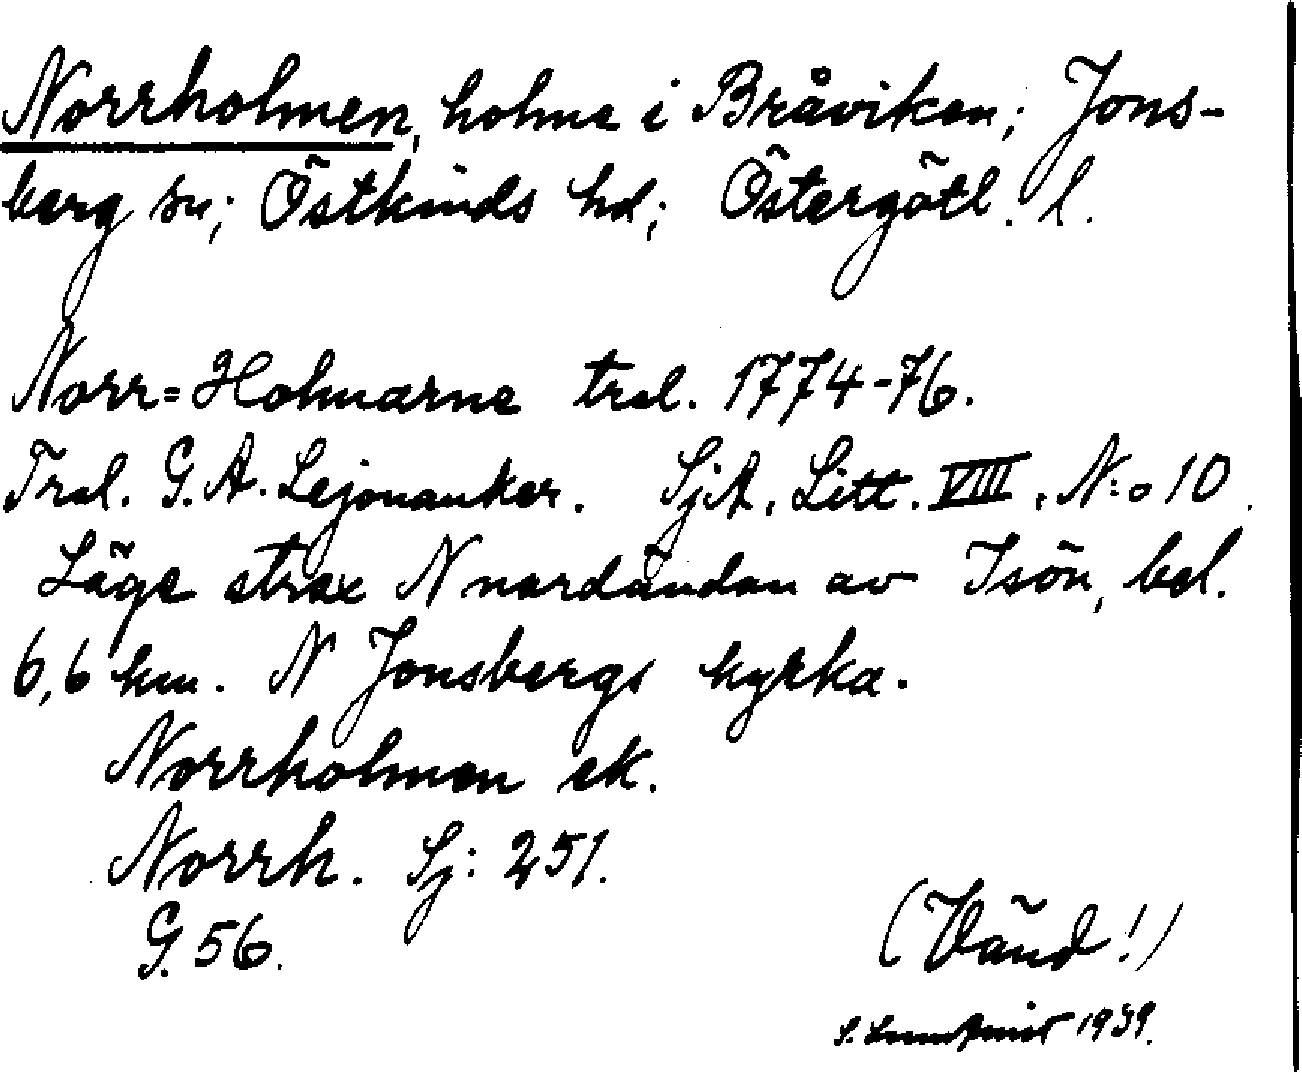 Norrholmen, holme i Bråviken; Jons-
berg sn; Östkinds hd; Östergötl. l.
Norr=Holmarne tral. 1774-76.
Tral. G. A. Lejonanker. SjA. Litt. VIII. N:o 10.
Läge strax N nordändan av Isön, bel.
6,6 km. N Jonsbergs kyrka.
Norrholmen ek.
Norrh. Sj: 251.
G. 56.
(Vänd!)
S. 1939.